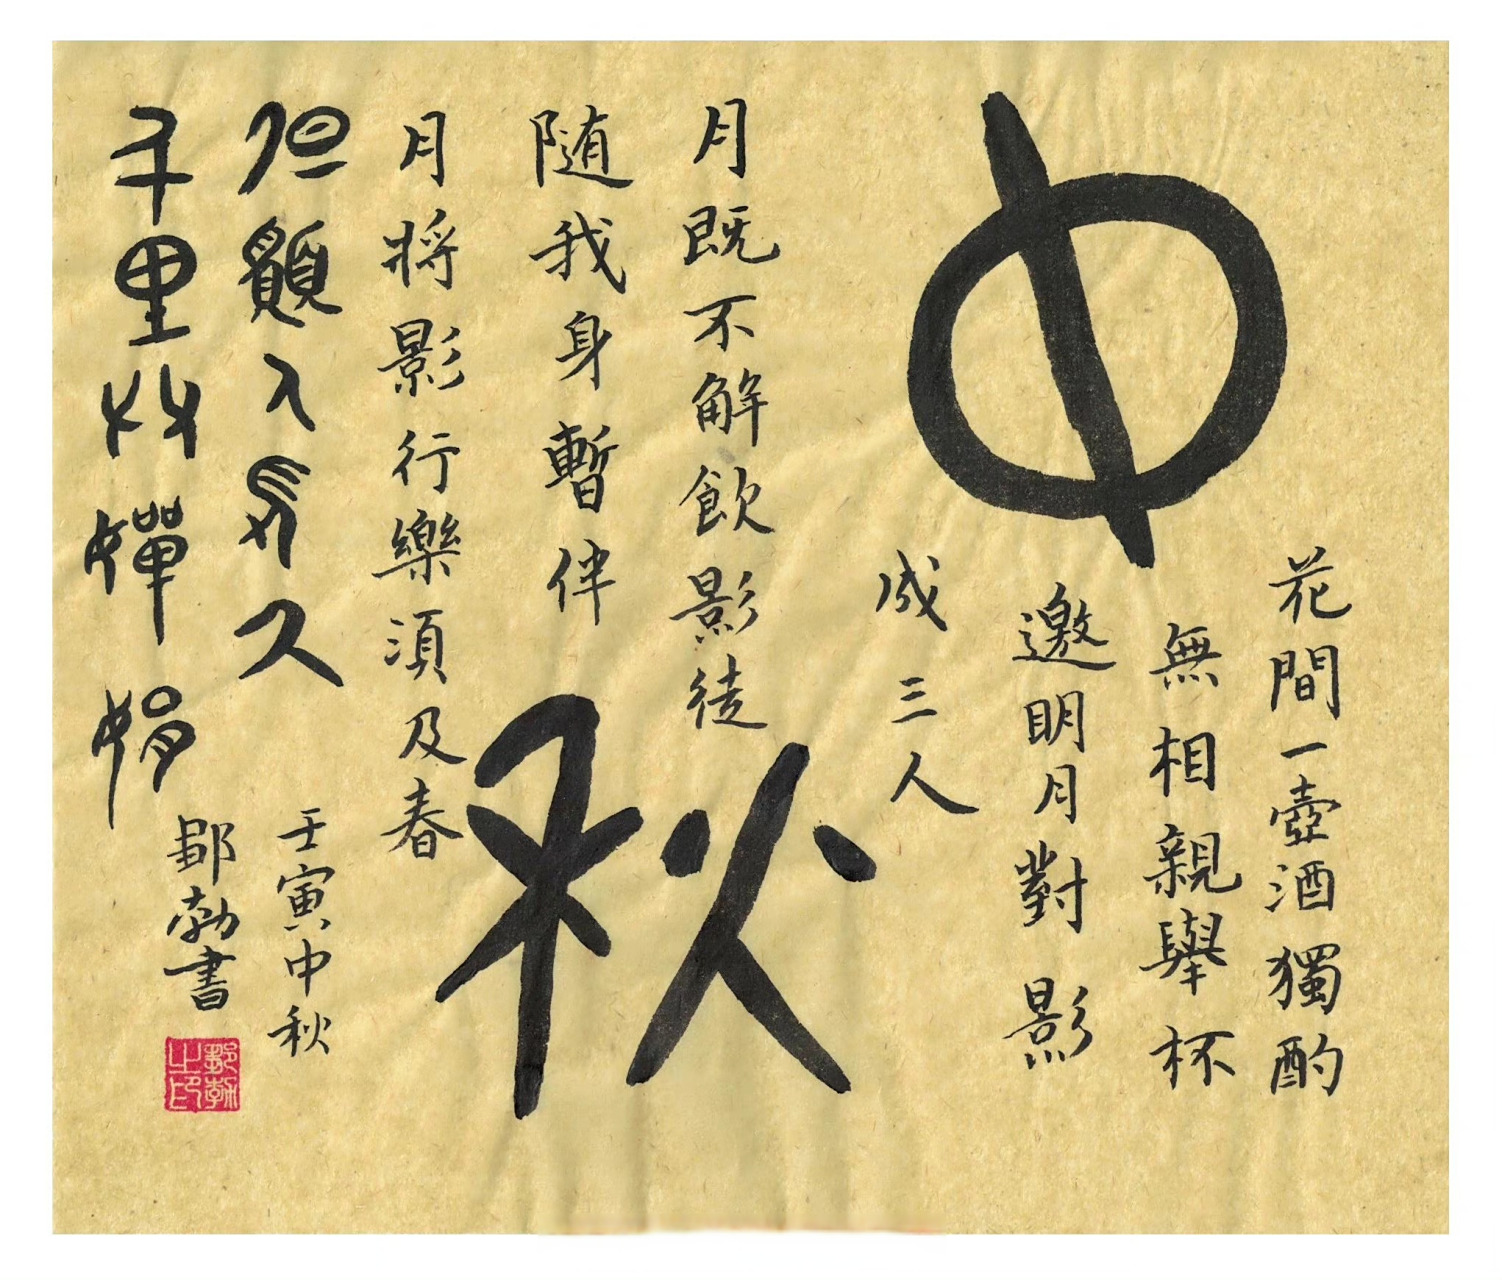 中
秋
花間一壺酒獨酌
無相親舉杯
邀明月對影
成三人
月既不解飲影徒
随我身暫伴
月將影行樂須及春
但願人長久
千里共嬋娟
壬寅中秋
勃書
之印